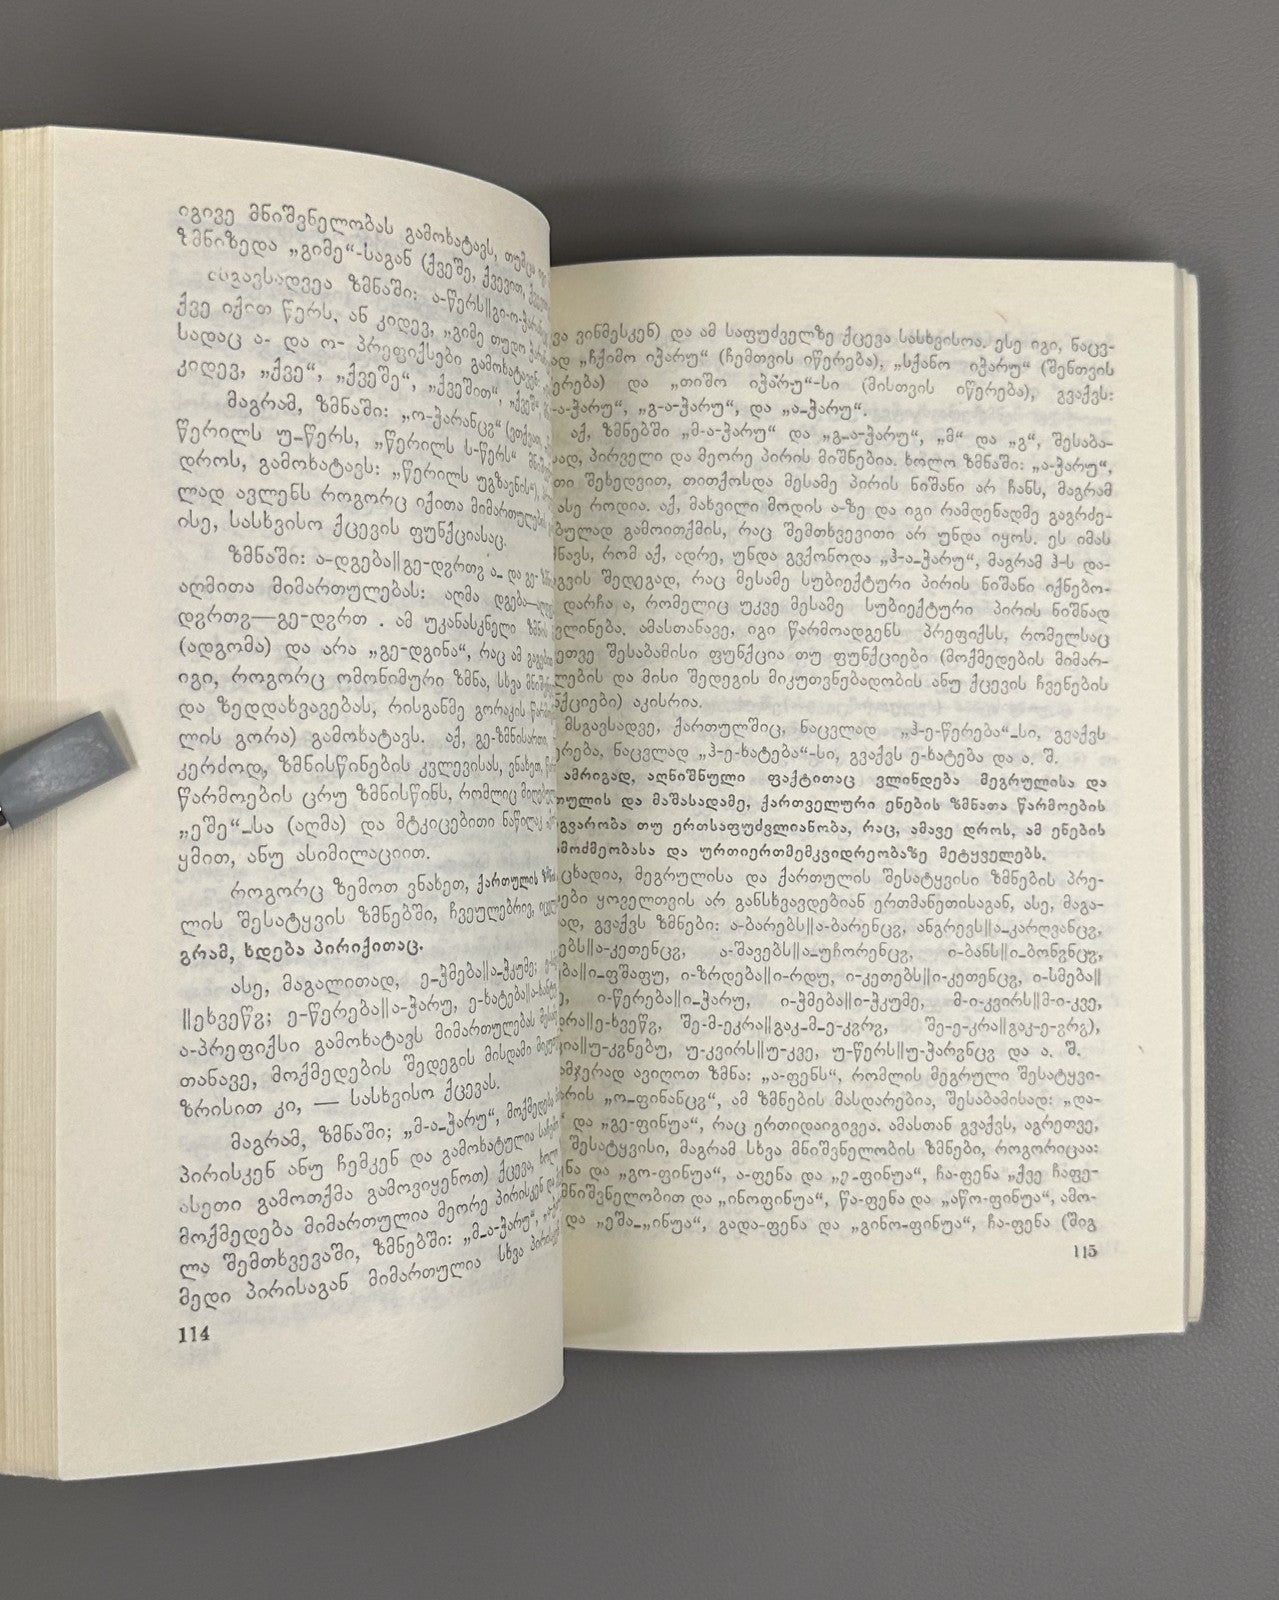 იგივე მნიშვნელობას გამოხატავს, თუმცა
ზმნიზედა „გიმე“-საგან (ქვეშე, ქვევით,
ასგავსადვეა ზმნაში: ა-წერს||გი-ო-ჭარანც
ქვე იქით წერს, ან კიდევ, „გიმე თუდო
სადაც ა- და ო- პრეფიქსები გამოხატავენ:
კიდევ, „ქვე“, „ქვეშე“, „ქვეშით“, „ქვეშ“
მაგრამ, ზმნაში: „ო-ჭარანცჷ“ (ვთქვათ,
წერილს უ-წერს, „წერილს ს-წერს“
დროს, გამოხატავს: „წერილს უგზავნის“),
ლად ავლენს როგორც იქითა მიმართულების
ისე, სასხვისო ქცევის ფუნქციასაც.
ზმნაში: ა-დგება||გე-დჷრთჷ ა- და გე-
აღმითა მიმართულებას: აღმა დგება—
დჷრთჷ—გე-დჷრთ . ამ უკანასკნელი ზმნის
(ადგომა) და არა „გე-დგინა“, რაც ამ გაგებით
იგი, როგორც ომონიმური ზმნა, სხვა
და ზედდახვავებას, რისგანმე გორაკის
ლის გორა) გამოხატავს. აქ, გე-ზმნისართი,
კერძოდ, ზმნისწინების კვლევისას, ვნახეთ,
წარმოების ცრუ ზმნისწინს, რომლიც
„ეშე“-სა (აღმა) და მტკიცებითი ნაწილაკ
ყმით, ანუ ასიმილაციით.
როგორც ზემოთ ვნახეთ, ქართულის
ლის შესატყვის ზმნებში, ჩვეულებრივ,
გრამ, ხდება პირიქითაც.
ასე, მაგალითად, ე-ჭმება||ა-ჭკუმე;
||ეხვეწჷ; ე-წერება||ა-ჭარუ, ე-ხატება||ა-ხანტე
ა-პრეფიქსი გამოხატავს მიმართულებას
თანავე, მოქმედების შედეგის მისდამი
ზრისით კი, — სასხვისო ქცევას.
მაგრამ, ზმნაში; „მ-ა-ჭარუ“, მოქმედება
პირისკენ ანუ ჩემკენ და გამოხატულია
ასეთი გამოთქმა გამოვიყენოთ) ქცევა, ხოლო
მოქმედება მიმართულია მეორე პირისკენ და
ლა შემთხვევაში, ზმნებში: „მ-ა-ჭარუ“,
მედი პირისაგან მიმართულია სხვა
114
ვა ვინმესკენ) და ამ საფუძველზე ქცევა სასხვისოა. ესე იგი, ნაცვ-
ად „ჩქიმო იჭარუ“ (ჩემთვის იწერება), „სქანო იჭარუ“ (შენთვის
ერება) და „თიშო იჭარუ“-სი (მისთვის იწერება), გვაქვს:
-ა-ჭარუ“, „გ-ა-ჭარუ“, და „ა-ჭარუ“.
აქ, ზმნებში „მ-ა-ჭარუ“ და „გ-ა-ჭარუ“, „მ“ და „გ“, შესაბა-
ად, პირველი და მეორე პირის მიშნებია. ხოლო ზმნაში: „ა-ჭარუ“,
თი შეხედვით, თითქოსდა მესამე პირის ნიშანი არ ჩანს, მაგრამ
ასე როდია. აქ, მახვილი მოდის ა-ზე და იგი რამდენადმე გაგრძე-
ბულად გამოითქმის, რაც შემთხვევითი არ უნდა იყოს. ეს იმას
ნავს, რომ აქ, ადრე, უნდა გვქონოდა „ჰ-ა-ჭარუ“, მაგრამ ჰ-ს და-
გვის შედეგად, რაც მესამე სუბიექტური პირის ნიშანი იქნებო-
დარჩა ა, რომელიც უკვე მესამე სუბიექტური პირის ნიშნად
ვლინება. ამასთანავე, იგი წარმოადგენს პრეფიქსს, რომელსაც
ეთვე შესაბამისი ფუნქცია თუ ფუნქციები (მოქმედების მიმარ-
ლების და მისი შედეგის მიკუთვნებადობის ანუ ქცევის ჩვენების
ნქციები) აკისრია.
მსგავსადვე, ქართულშიც, ნაცვლად „ჰ-ე-წერება“-სი, გვაქვს
ერება, ნაცვლად „ჰ-ე-ხატება“-სი, გვაქვს ე-ხატება და ა. შ.
ამრიგად, აღნიშნული ფაქტითაც ვლინდება მეგრულისა და
თულის და მაშასადამე, ქართველური ენების ზმნათა წარმოების
გვარობა თუ ერთსაფუძვლიანობა, რაც, ამავე დროს, ამ ენების
მოძმეობასა და ურთიერთმემკვიდრეობაზე მეტყველებს.
ცხადია, მეგრულისა და ქართულის შესატყვისი ზმნების პრე-
ები ყოველთვის არ განსხვავდებიან ერთმანეთისაგან, ასე, მაგა-
ად, გვაქვს ზმნები: ა-ბარებს||ა-ბარენცჷ, ანგრევს||ა-კარღვანცჷ,
ებს||ა-კეთენცჷ, ა-შავებს||ა-უჩორენცჷ, ი-ბანს||ი-ბონჷნცჷ,
ბა||ი-ფშაფუ, ი-ზრდება||ი-რდუ, ი-კეთებს||ი-კეთენცჷ, ი-სმება||
ე, ი-წერება||ი-ჭარუ, ი-ჭმება||ი-ჭკუმე, მ-ი-კვირს||მ-ი-კვე,
დრა||ე-ხვეწჷ, შე-მ-ეკრა||გაკ-მ-ე-კჷრჷ, შე-ე-კრა||გაკ-ე-გრჷ),
ია||უ-კჷნებუ, უ-კვირს||უ-კვე, უ-წერს||უ-ჭარჷნცჷ და ა. შ.
ამჯერად ავიღოთ ზმნა: „ა-ფენს“, რომლის მეგრული შესატყვი-
არის „ო-ფინანცჷ“, ამ ზმნების მასდარებია, შესაბამისად: „და-
და „გე-ფინუა“, რაც ერთიდაიგივეა. ამასთან გვაქვს, აგრეთვე,
შესატყვისი, მაგრამ სხვა მნიშვნელობის ზმნები, როგორიცაა:
ნა და „გო-ფინუა“, ა-ფენა და „ე-ფინუა“, ჩა-ფენა „ქვე ჩაფე-
მნიშვნელობით და „ინოფინუა“, წა-ფენა და „აწო-ფინუა“, ამო-
და „ეშა-„ინუა“, გადა-ფენა და „გინო-ფინუა“, ჩა-ფენა (შიგ
115